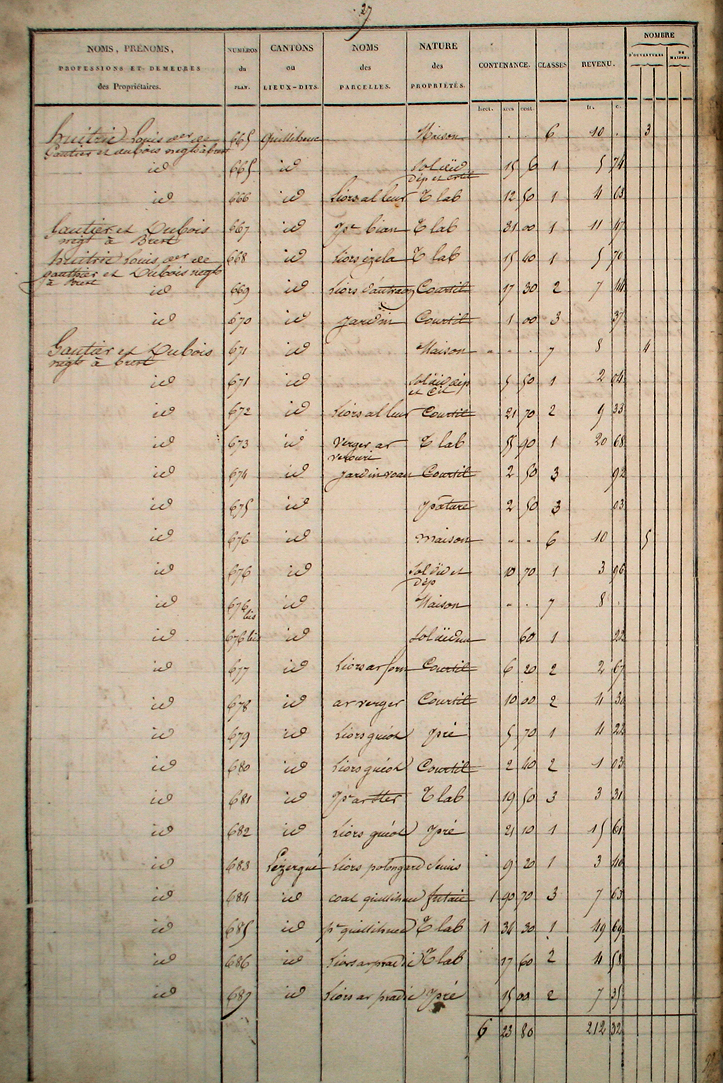 27
NOMS, PRÉNOMS, PROFESSIONS ET DEMEURES des Propriétaires. NUMÉROS du PLAN. CANTONS ou LIEUX-DITS. NOMS des PARCELLES. NATURE des PROPRIÉTÉS. CONTENANCE. CLASSES REVENU. NOMBRE D'OUVERTURES DE MAISONS
hect. ares cent. fr. c.
huitric Louis de 665 Quillihouc Maison 6 10 . 3
Gautier et dubois negts à brest
id 665 id Sol id 15 1 5 74
dép et
id 666 id Liors al leur T lab 12 50 1 4 63
Gautier et Dubois 667 id bian T lab 31 00 1 11 47
negt à Brest
huitric Louis de 668 id Liors T lab 15 40 1 5 70
gauthier et Dubois negt
à Brest
id 669 id Liors Courtil 17 30 2 7 44
id 670 id jardin Courtil 1 00 3 37
Gautier et Dubois 671 id Maison 7 8 4
negts à brest
id 671 id Sol id dép 5 50 1 2 04
et
id 672 id Liors al leur Courtil 21 70 2 9 33
id 673 id Verger ar T lab 1 20 68
id 674 id jardin Courtil 2 50 3 92
id 675 id pâture 2 50 3 03
id 676 id Maison 6 10 5
id 676 id Sol id et 10 70 1 3 96
dép
id 676 bis id Maison 7 8
id 676 bis id Sol 60 1 22
id 677 id Liors ar forn Courtil 6 20 2 2 67
id 678 id ar verger Courtil 10 00 2 4 30
id 679 id Liors guiot pré 5 70 1 4 22
id 680 id Liors guiot Courtil 2 40 2 1 03
id 681 id T lab 19 50 3 3 31
id 682 id Liors guiot pré 21 10 1 15 61
id 683 Lezergué Liors 9 20 1 3 40
id 684 id coat quillihouc futaie 1 90 70 3 7 63
id 685 id pc quillihouc T lab 1 34 30 1 49 69
id 686 id Liors ar T lab 17 60 2 4 58
id 687 id Liors ar pré 15 00 2 7 35
6 23 80 212 32